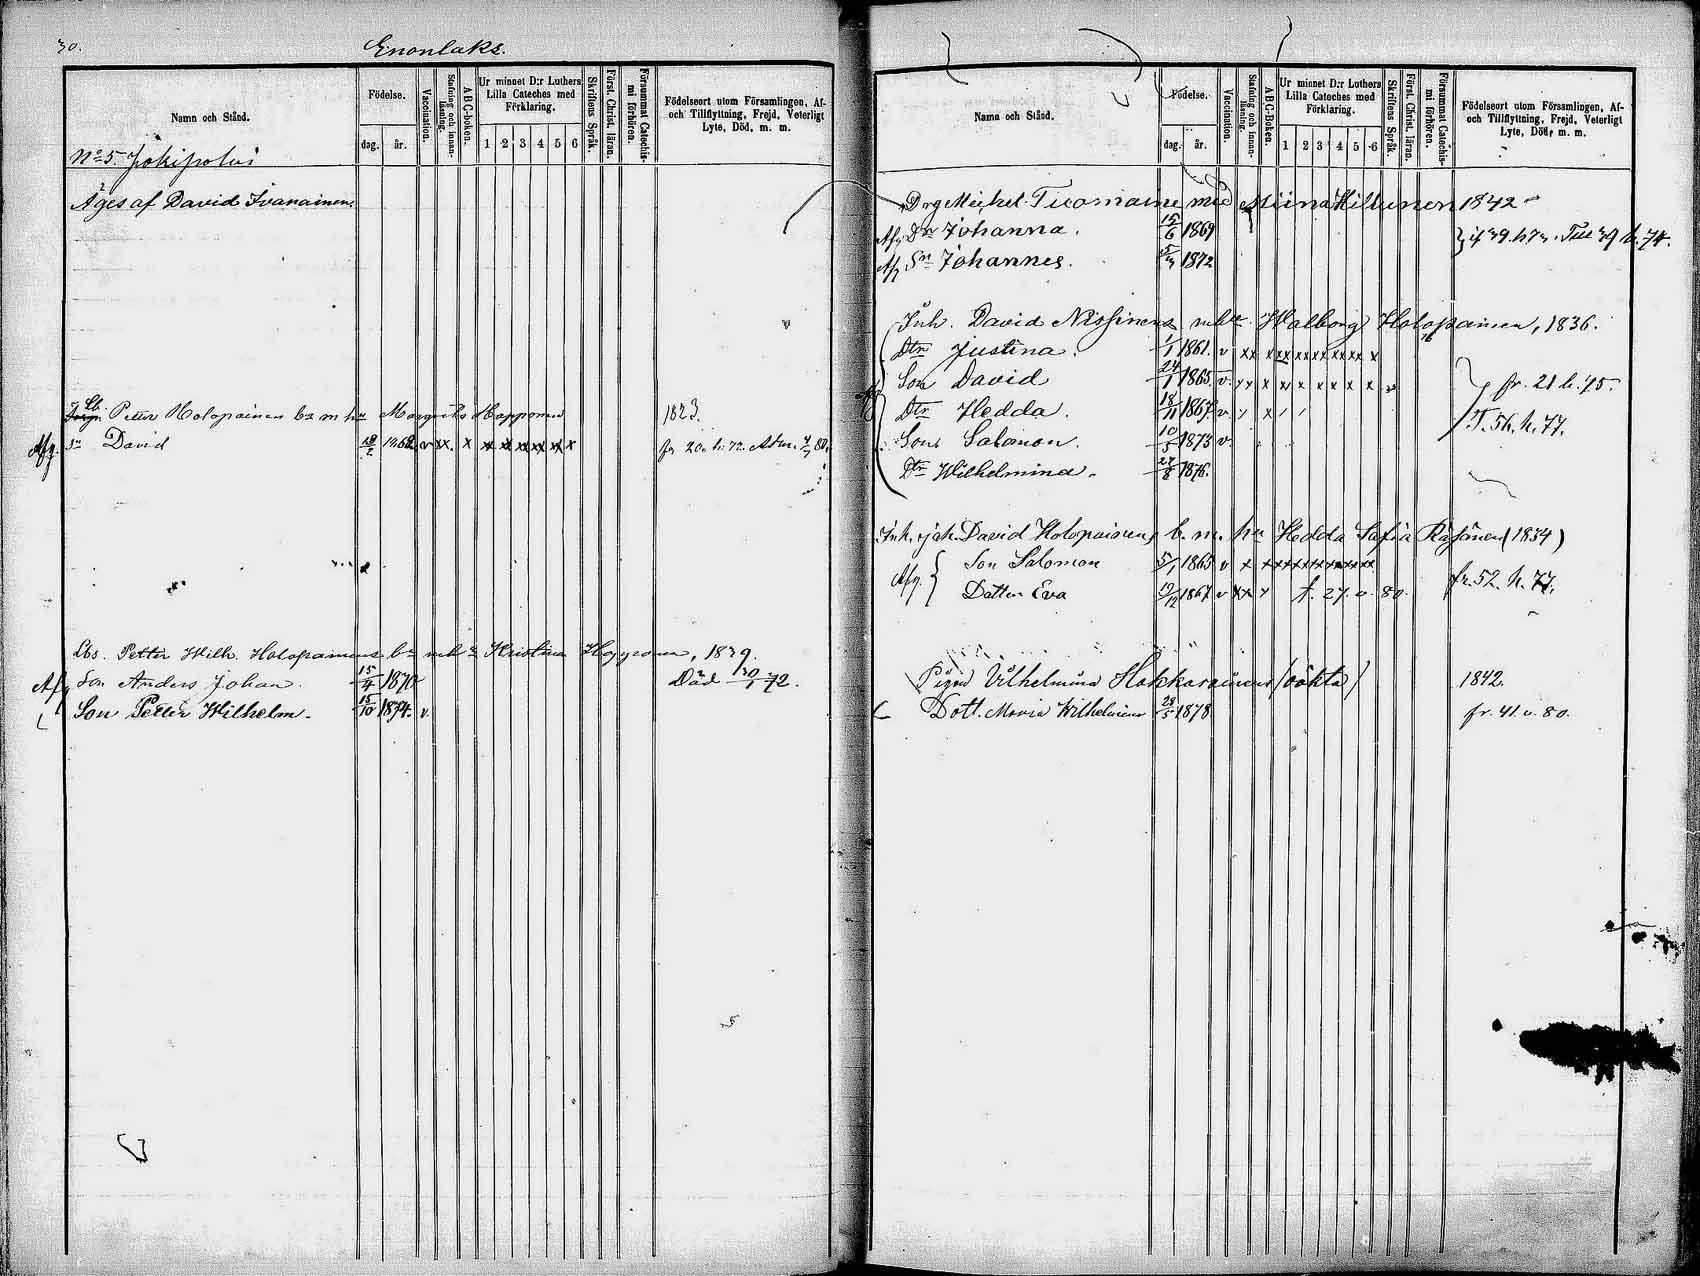 30.
Enonlaks.
Namn och Stånd.
Födelse.
dag. år.
Vaccination.
Stafning och innan-läsning.
ABC-boken.
Ur minnet D:r Luthers Lilla Cateches med Förklaring.
1 2 3 4 5 6
Skriftens Språk.
Först. Christ. läran.
Försummat Catechis-mi förhören.
Födelseort utom Församlingen, Af- och Tillflyttning, Frejd, Veterligt Lyte, Död, m. m.
No 5. Jokipolvi
Äges af David Ivanainen.
Lb. Petter Holopainen bs m hu Margreta Happonen 1823.
Afg. sn David 1862 v xx x xx xx xx xx xx x fr 20. h. 72.
Lbs. Petter Wilh. Holopainens bs mhu Kristina Hopponen, 1839.
Afg Son Anders Johan. 15/4 1870 Död 30/1 72.
Son Petter Wilhelm. 15/10 1874. v.
Namn och Stånd.
Födelse.
dag. år.
Vaccination.
Stafning och innan-läsning.
ABC-Boken.
Ur minnet D:r Luthers Lilla Cateches med Förklaring.
1 2 3 4 5 6
Skriftens Språk.
Först. Christ. läran.
Försummat Catechis-mi förhören.
Födelseort utom Församlingen, Af- och Tillflyttning, Frejd, Veterligt Lyte, Död, m. m.
Drg Michel Tuomaine med Miina Hiltunen 1842
Afg Dr Johanna. 15/6 1869
Afg Sn Johannes. 1872
Inh. David Nissinens mhu Walborg Holopainen, 1836.
Dtr Justina. 1/1 1861. v xx x xx xx xx xx xx x
Son David 24/1 1865. v. x x x x x x x x x fr. 21 h. 75.
Afg
Dtr Hedda. 18/11 1867. v x T. 56. h. 77.
Son Salomon. 10/5 1873 v
Dtr Wilhelmina. 27/8 1876.
Inh. Joh. David Holopainens b. m. hu Hedda Sofia Räsänen (1834)
Afg. Son Salomon 5/1 1865 v x x xx xx xx xx xx
Dotter Eva 1867 v xx x f. 27. v. 80. fr. 52. h. 77.
Pigan Vilhelmina Hakkarainens (oäkta) 1842.
Dott. Maria Wilhelmina 28/5 1878 fr. 41. v. 80.